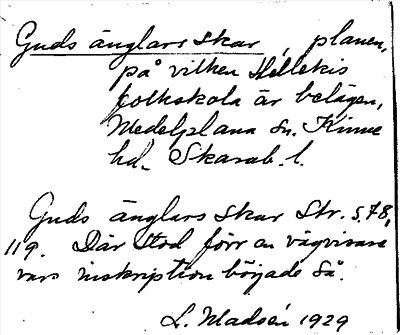 Guds änglars skar, planen,
på vilken Hellekis
folkskola är belägen,
Medelplana sn. Kinne
hd. Skarab. l.
Guds änglars skar Str. s. 78,
119. Där stod förr en vägvisare
vars inskription började så.
L. Madsén 1929